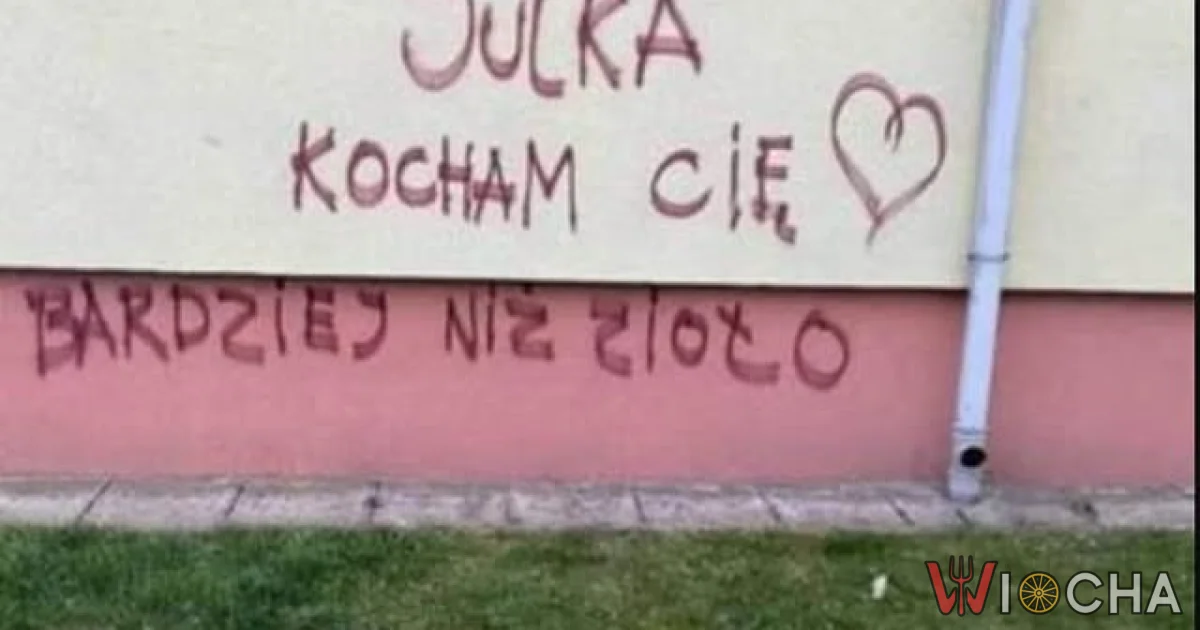 JULKA
KOCHAM CIĘ
BARDZIEJ NIŻ ZIOŁO
WIOCHA